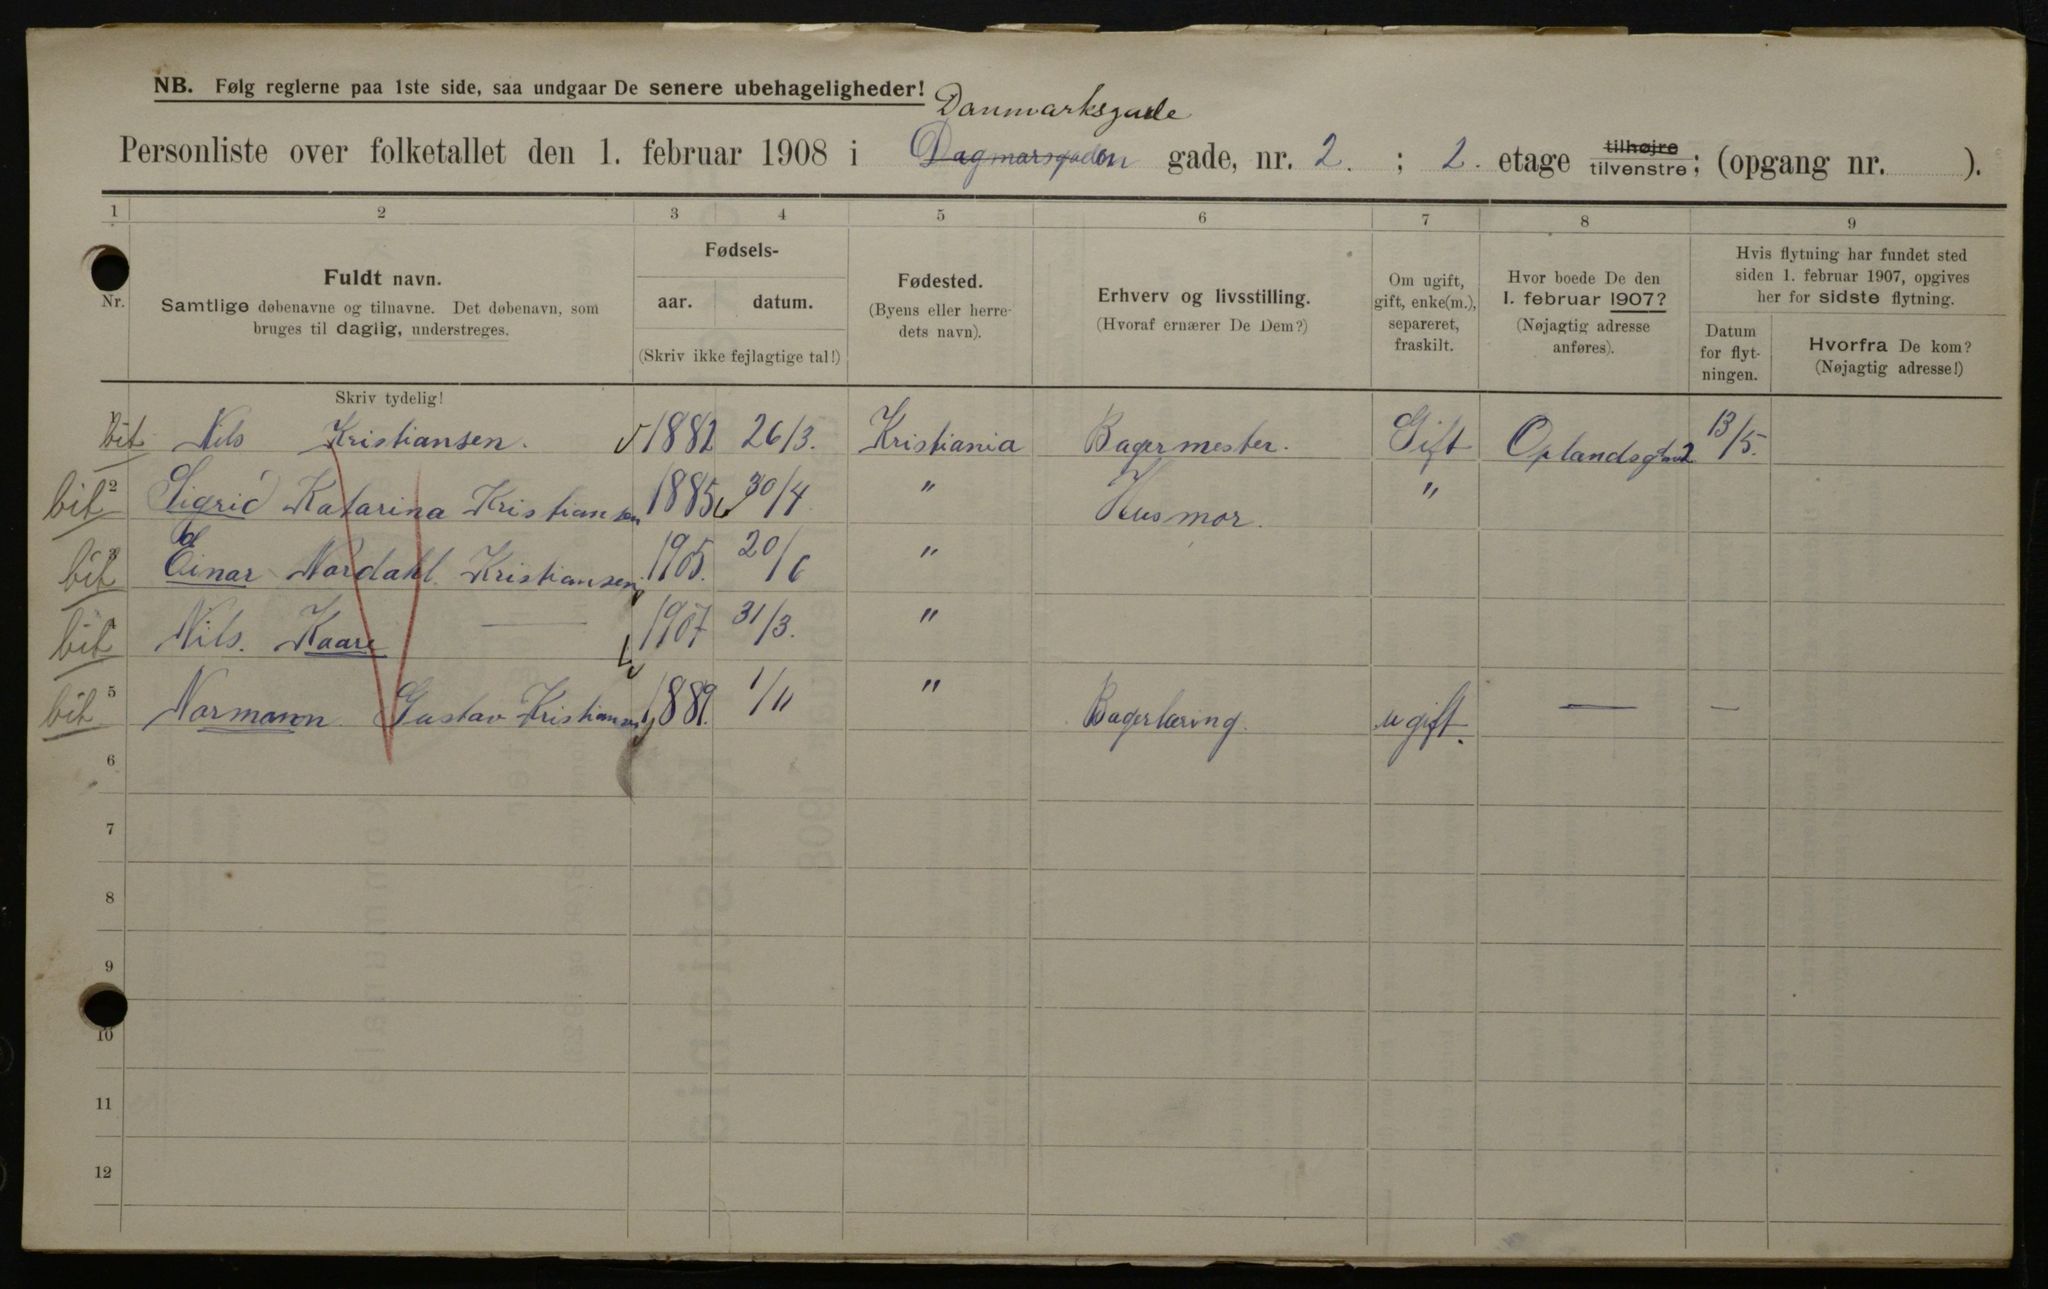 NB. Følg reglerne paa 1ste side, saa undgaar De senere ubehageligheder!
Danmarksgade
Personliste over folketallet den 1. februar 1908 i Dagmarsgaden gade, nr. 2. ; 2. etage tilhøjre tilvenstre; (opgang nr. ).
1 2 3 4 5 6 7 8 9
Nr.
Fuldt navn.
Samtlige døbenavne og tilnavne. Det døbenavn, som
bruges til daglig, understreges.
Skriv tydelig!
Fødsels-
aar. datum.
(Skriv ikke fejlagtige tal!)
Fødested.
(Byens eller herre-
dets navn).
Erhverv og livsstilling.
(Hvoraf ernærer De Dem?)
Om ugift,
gift, enke(m.),
separeret,
fraskilt.
Hvor boede De den
1. februar 1907?
(Nøjagtig adresse
anføres).
Hvis flytning har fundet sted
siden 1. februar 1907, opgives
her for sidste flytning.
Datum
for flyt-
ningen.
Hvorfra De kom?
(Nøjagtig adresse!)
bit Nils Kristiansen. 1882 26/3. Kristiania Bagermester. Gift 13/5.
bit 2 Sigrid Katarina Kristiansen 1885 30/4 " Husmor. "
bit 3 Einar Nordahl. Kristiansen 1905. 20/6 "
bit 4 Nils. Kaare — 1907 31/3. "
bit 5 Normann Gustav Kristiansen 1889. 1/11 " Bagerlæring. ugift. — —
6
7
8
9
10
11
12